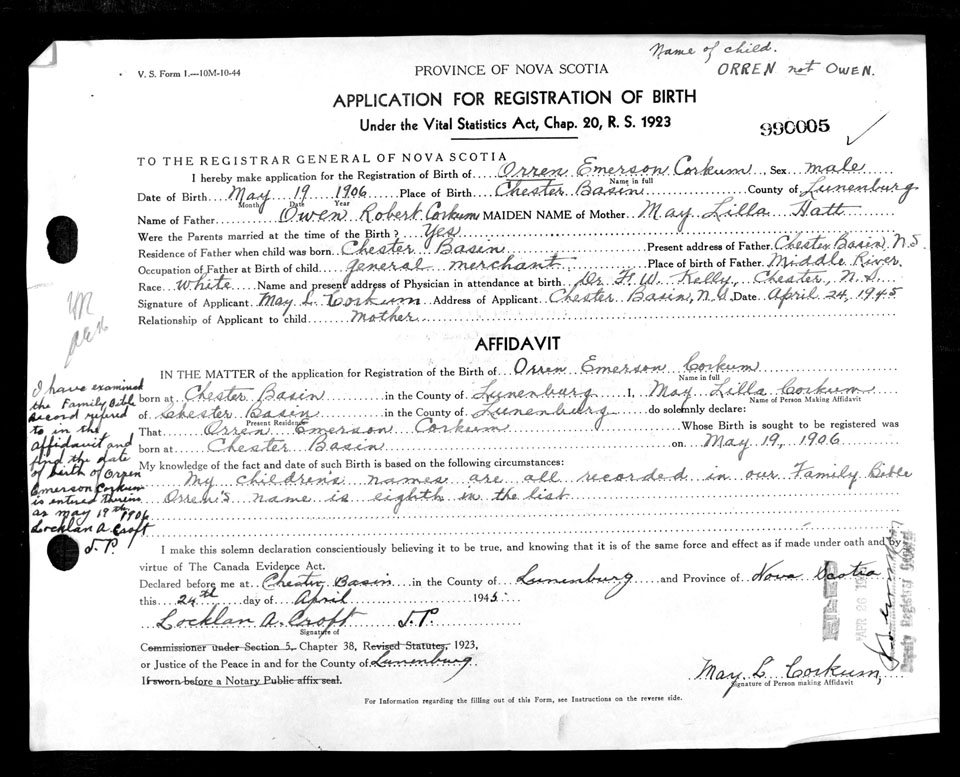 Name of child.
ORREN not OWEN.
V. S. Form 1.—10M-10-44
PROVINCE OF NOVA SCOTIA
APPLICATION FOR REGISTRATION OF BIRTH
Under the Vital Statistics Act, Chap. 20, R. S. 1923
990005
TO THE REGISTRAR GENERAL OF NOVA SCOTIA
I hereby make application for the Registration of Birth of Orren Emerson Corkum Sex male
Name in full
Date of Birth May 19 1906 Place of Birth Chester Basin County of Lunenburg
Month Date Year
Name of Father Owen Robert Corkum MAIDEN NAME of Mother May Lilla Hatt
Were the Parents married at the time of the Birth? Yes
Residence of Father when child was born Chester Basin Present address of Father Chester Basin N.S.
Occupation of Father at Birth of child general merchant Place of birth of Father Middle River
Race White Name and present address of Physician in attendance at birth Dr. F. W. Kelly, Chester, N.S.
Signature of Applicant May L. Corkum Address of Applicant Chester Basin, N.S. Date April 24, 1945
Relationship of Applicant to child mother
AFFIDAVIT
IN THE MATTER of the application for Registration of the Birth of Orren Emerson Corkum
Name in full
born at Chester Basin in the County of Lunenburg I, May Lilla Corkum
Name of Person Making Affidavit
of Chester Basin in the County of Lunenburg do solemnly declare:
Present Residence
That Orren Emerson Corkum Whose Birth is sought to be registered was
born at Chester Basin on May 19, 1906
My knowledge of the fact and date of such Birth is based on the following circumstances:
My childrens names are all recorded in our Family Bible
Orren's name is eighth in the list
I have examined
the Family Bible
record refered
to in the
affidavit and
find the date
of birth of Orren
Emerson Corkum
is entered therein
as May 19th 1906
Locklan A. Croft
J.P.
I make this solemn declaration conscientiously believing it to be true, and knowing that it is of the same force and effect as if made under oath and by
virtue of The Canada Evidence Act.
Declared before me at Chester Basin in the County of Lunenburg and Province of Nova Scotia
this 24th day of April 1945
Locklan A. Croft J.P.
Signature of
Commissioner under Section 5, Chapter 38, Revised Statutes, 1923,
or Justice of the Peace in and for the County of Lunenburg
If sworn before a Notary Public affix seal.
May L. Corkum
Signature of Person making Affidavit
APR 26
Deputy Registrar General
For Information regarding the filling out of this Form, see Instructions on the reverse side.